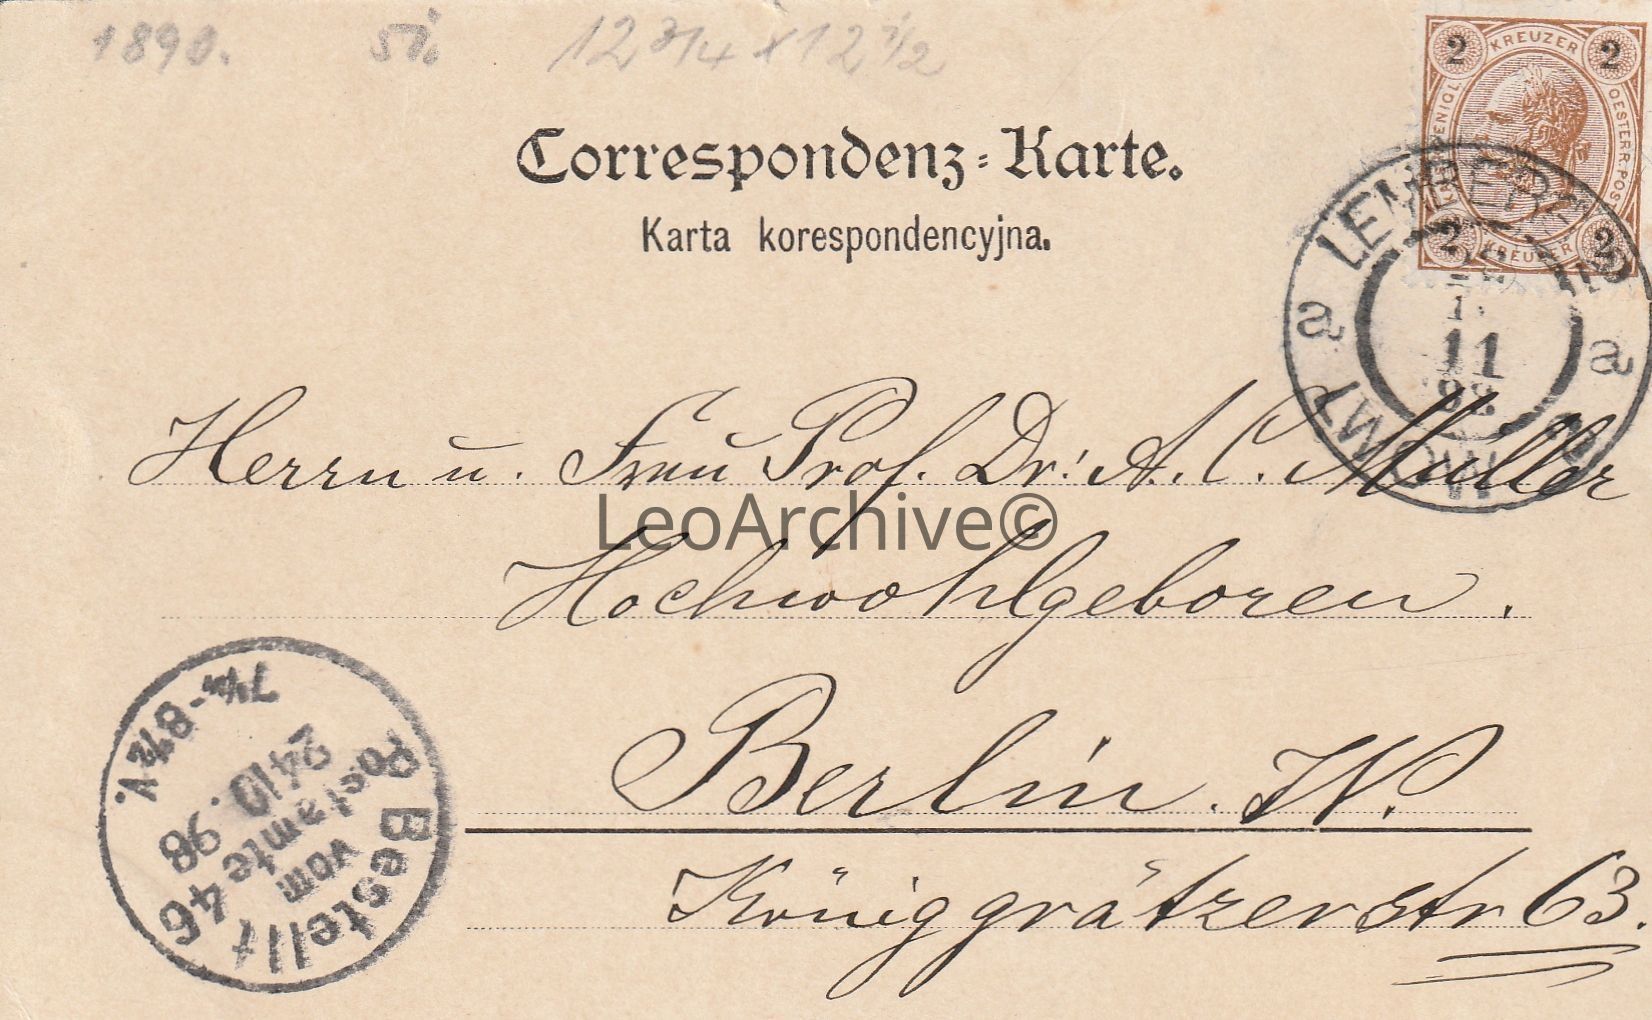 1890. 5i 12 3/4 x 12 1/2
2 KREUZER 2
OESTERR. POST
2 KREUZER 2
Correspondenz-Karte.
Karta korespondencyjna.
LEMBERG
a a
11
98
Herrn u. Frau Prof. Dr. A. C. Müller
LeoArchive©
Hochwohlgeboren.
Berlin. W.
Königgrätzerstr 63.
Bestellt
vom
Postamte 46
24.10.98
7¼-8½V.